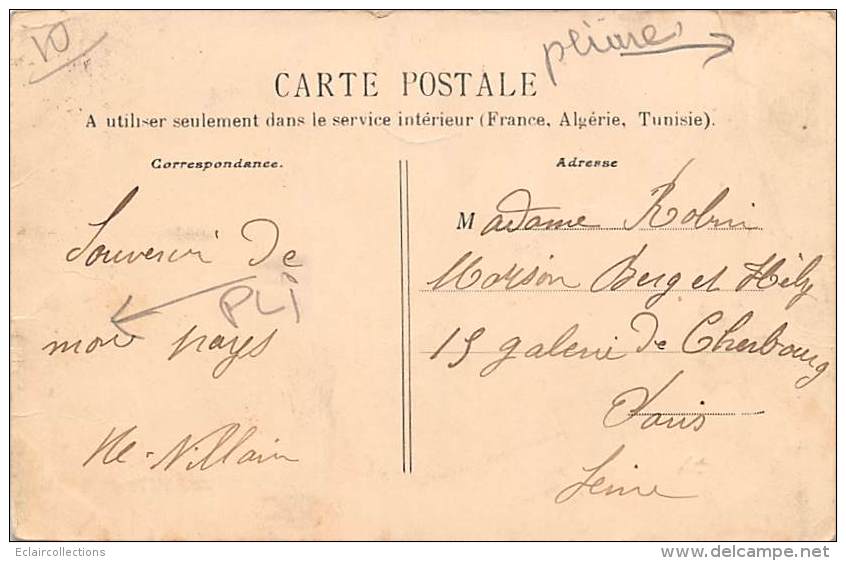 10
pliure
CARTE POSTALE
A utiliser seulement dans le service intérieur (France, Algérie, Tunisie).
Correspondance.
Souvenir de
PLI
mon pays
Villain
Adresse
Madame Robin
Maison Berg et Hély
15 galerie de Cherbourg
Paris
Seine
Eclaircollections
www.delcampe.net